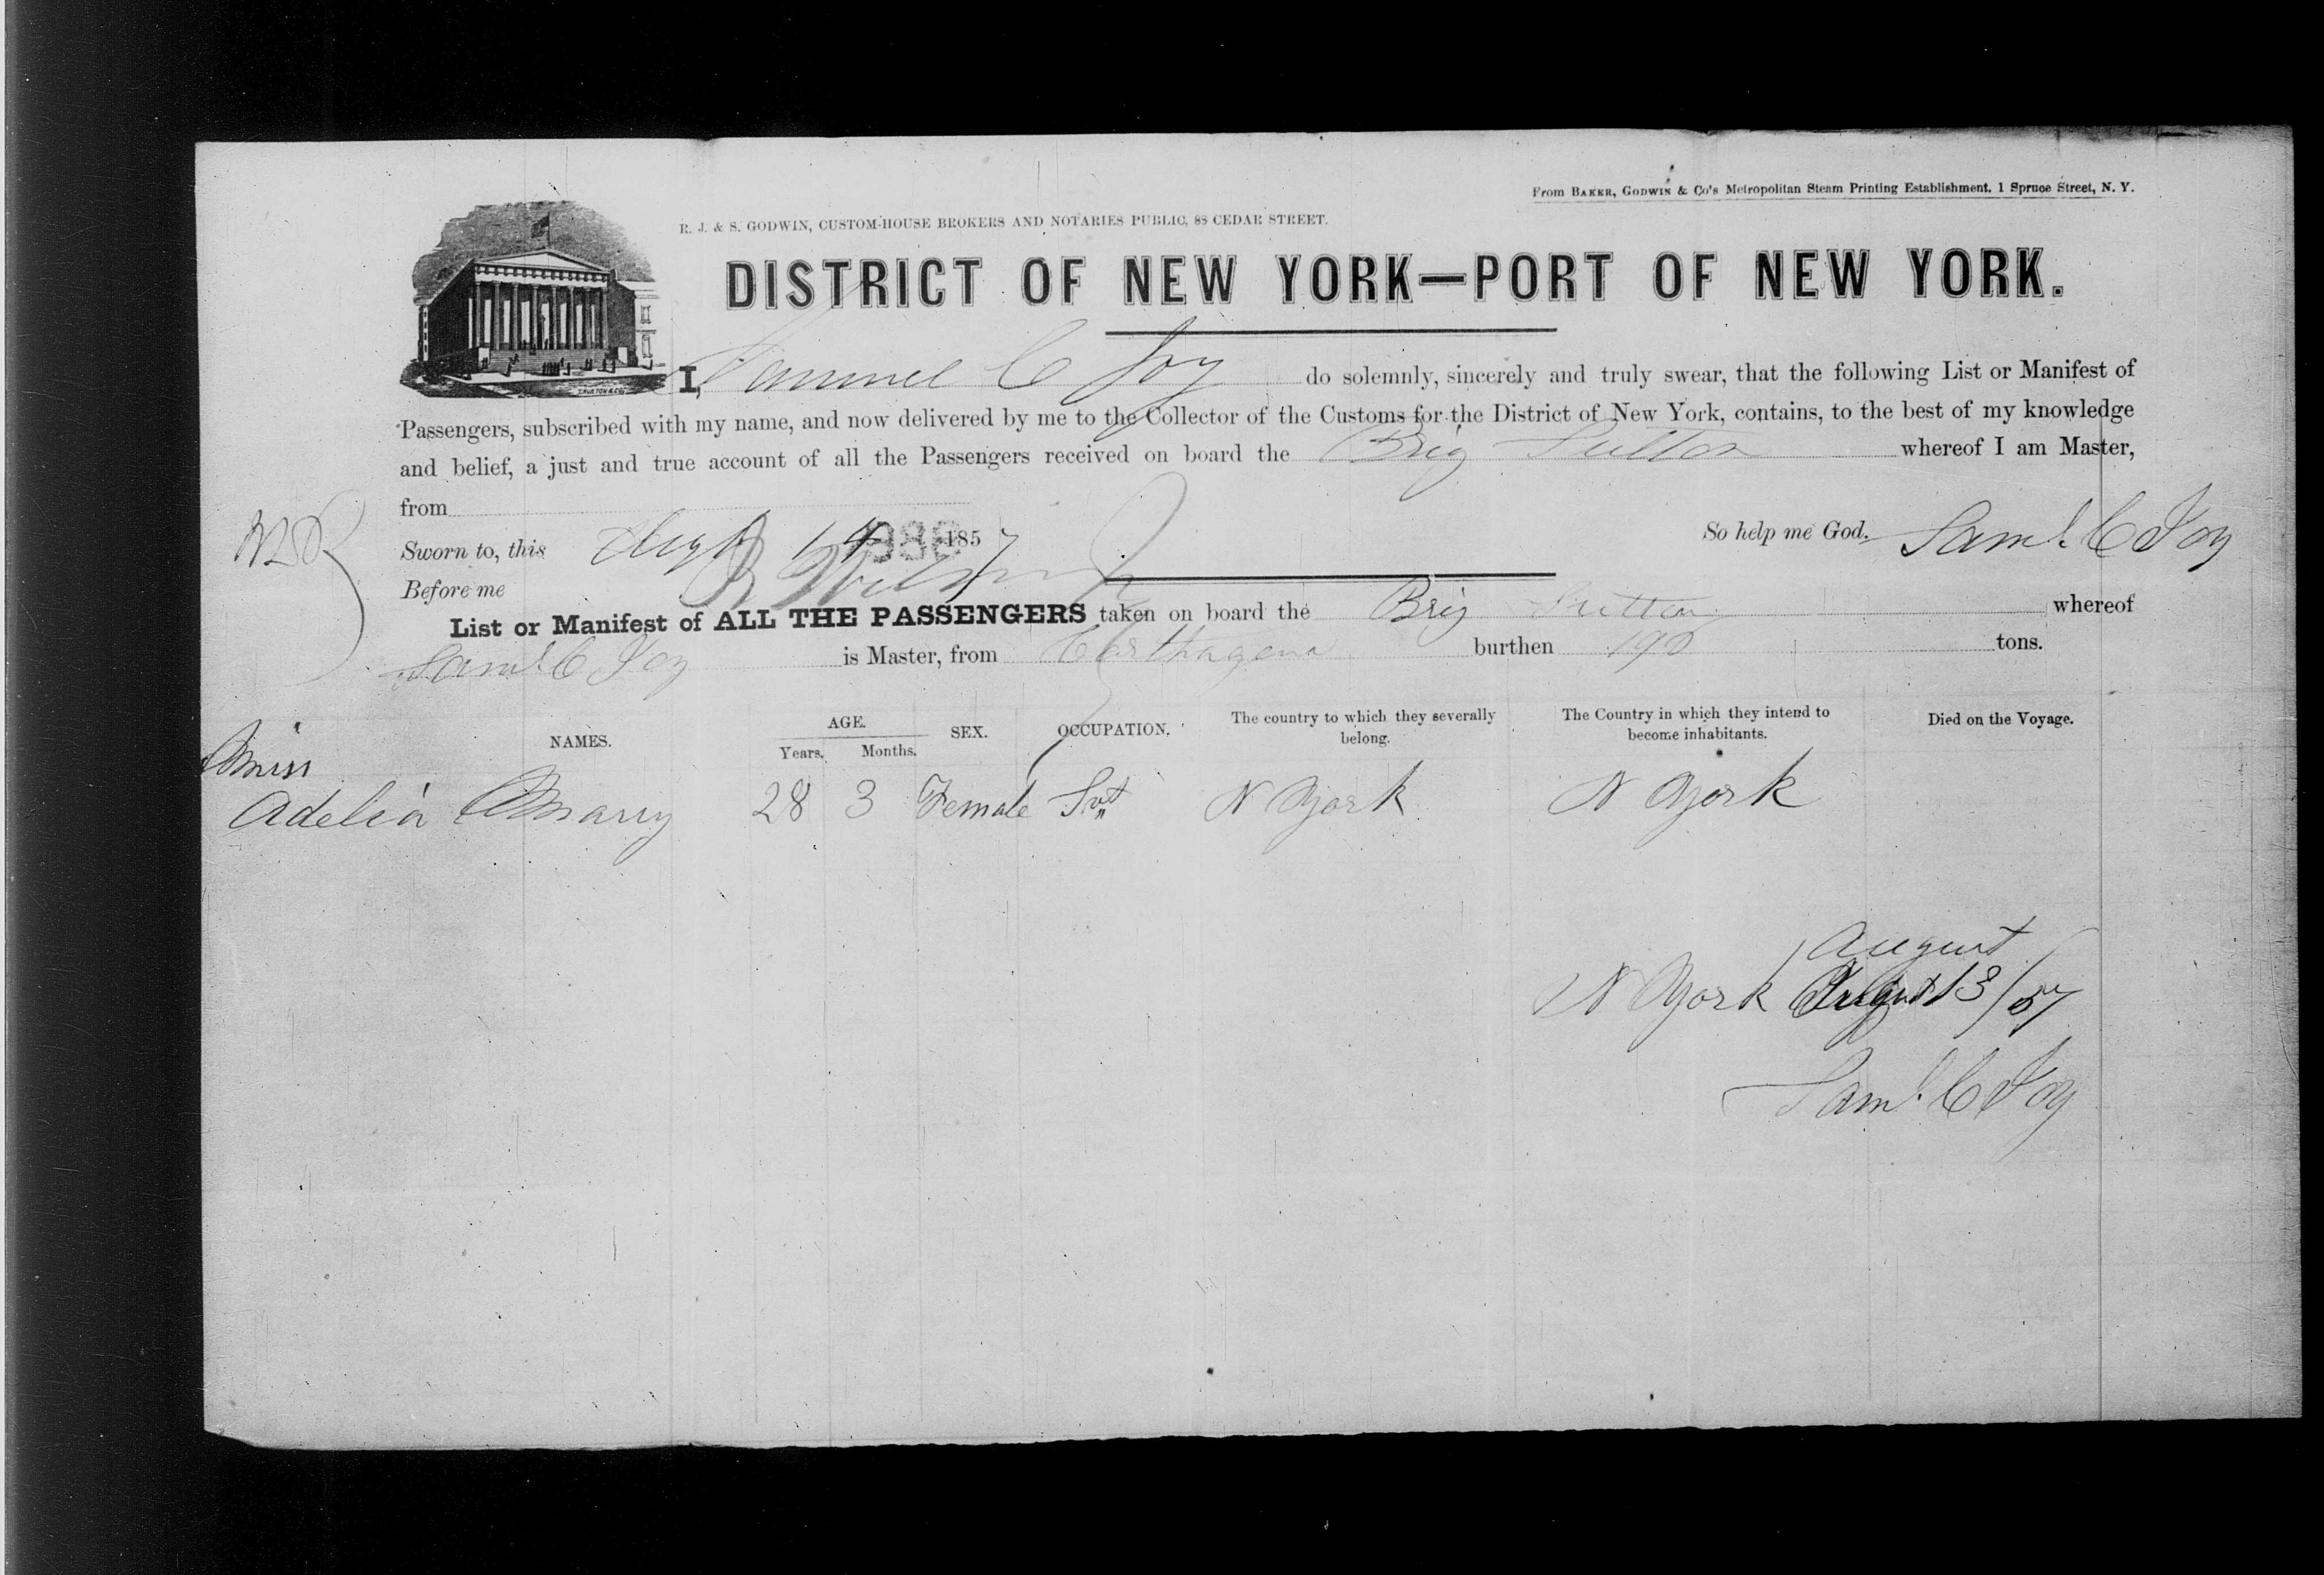 From BAKER, GODWIN & Co's Metropolitan Steam Printing Establishment, 1 Spruce Street, N. Y.
R. J. & S. GODWIN, CUSTOM-HOUSE BROKERS AND NOTARIES PUBLIC, 88 CEDAR STREET.
DISTRICT OF NEW YORK—PORT OF NEW YORK.
I, Samuel C Joy do solemnly, sincerely and truly swear, that the following List or Manifest of
Passengers, subscribed with my name, and now delivered by me to the Collector of the Customs for the District of New York, contains, to the best of my knowledge
and belief, a just and true account of all the Passengers received on board the Brig Sutton whereof I am Master,
from
Sworn to, this Augt 14 1857 So help me God. Saml. C Joy
Before me
List or Manifest of ALL THE PASSENGERS taken on board the Brig Sutton whereof
Saml C Joy is Master, from Carthagena burthen 190 tons.
NAMES. AGE. Years. Months. SEX. OCCUPATION. The country to which they severally belong. The Country in which they intend to become inhabitants. Died on the Voyage.
Miss
Adelia Marry 28 3 Female Svt N York N York
August
N York August 13/57
Saml. C Joy